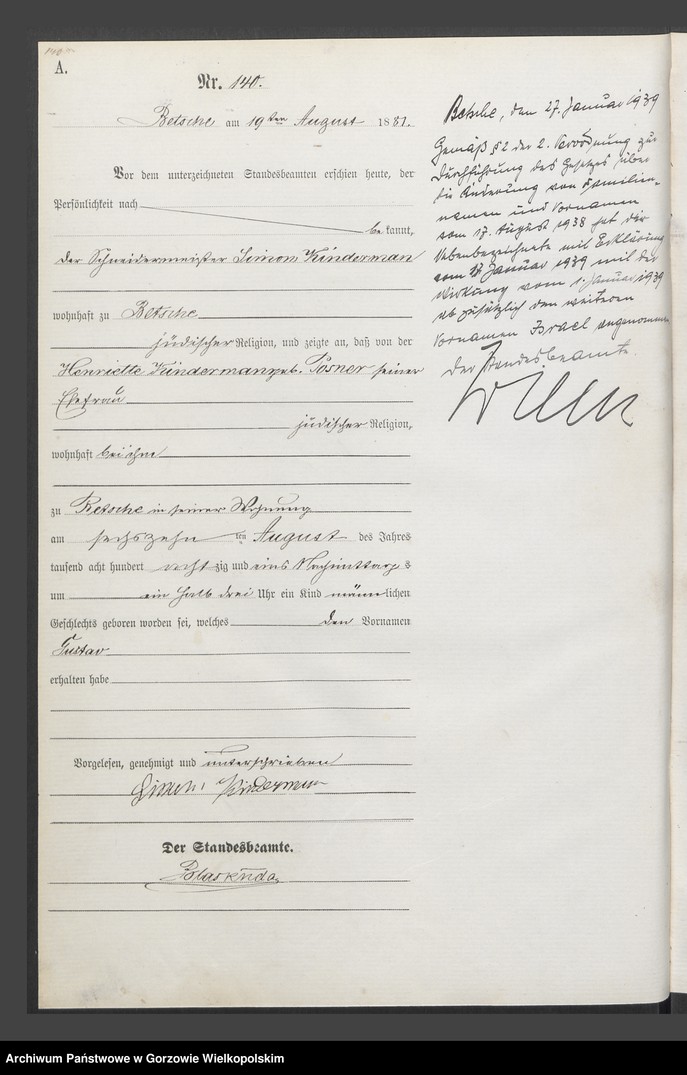 A.
Nr. 140.
Betsche am 19ten August 1881.
Vor dem unterzeichneten Standesbeamten erschien heute, der
Persönlichkeit nach
bekannt,
der Schneidermeister Simon Kinderman
wohnhaft zu Betsche
jüdischer Religion, und zeigte an, daß von der
Henriette Kinderman geb. Posner seiner
Ehefrau
jüdischer Religion,
wohnhaft bei ihm
zu Betsche in seiner Wohnung
am sechszehn ten August des Jahres
tausend acht hundert achtzig und eins Nachmittags
um ein halb drei Uhr ein Kind männlichen
Geschlechts geboren worden sei, welches den Vornamen
Gustav
erhalten habe
Vorgelesen, genehmigt und unterschrieben
Simon Kinderman
Der Standesbeamte.
Betsche, den 27. Januar 1939
Gemäß § 2 der 2. Verordnung zur
Durchführung des Gesetzes über
die Änderung von Familien-
namen und Vornamen
vom 17. August 1938 hat der
Nebenbezeichnete mit Erklärung
vom Januar 1939 mit der
Wirkung vom 1. Januar 1939
ab zusätzlich den weiteren
Vornamen Israel angenommen
Der Standesbeamte.
Archiwum Państwowe w Gorzowie Wielkopolskim